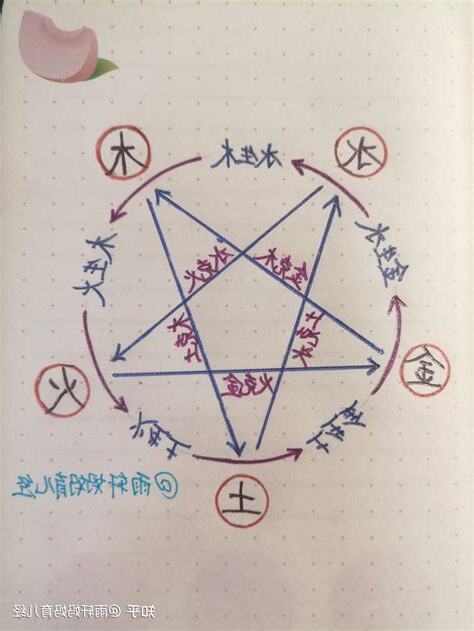 水
水生木
木
金生水
木生火
金克木
水克火
土克水
木克土
火克金
金
火
土生金
火生土
土
@雨轩妈妈育儿经
知乎 @雨轩妈妈育儿经